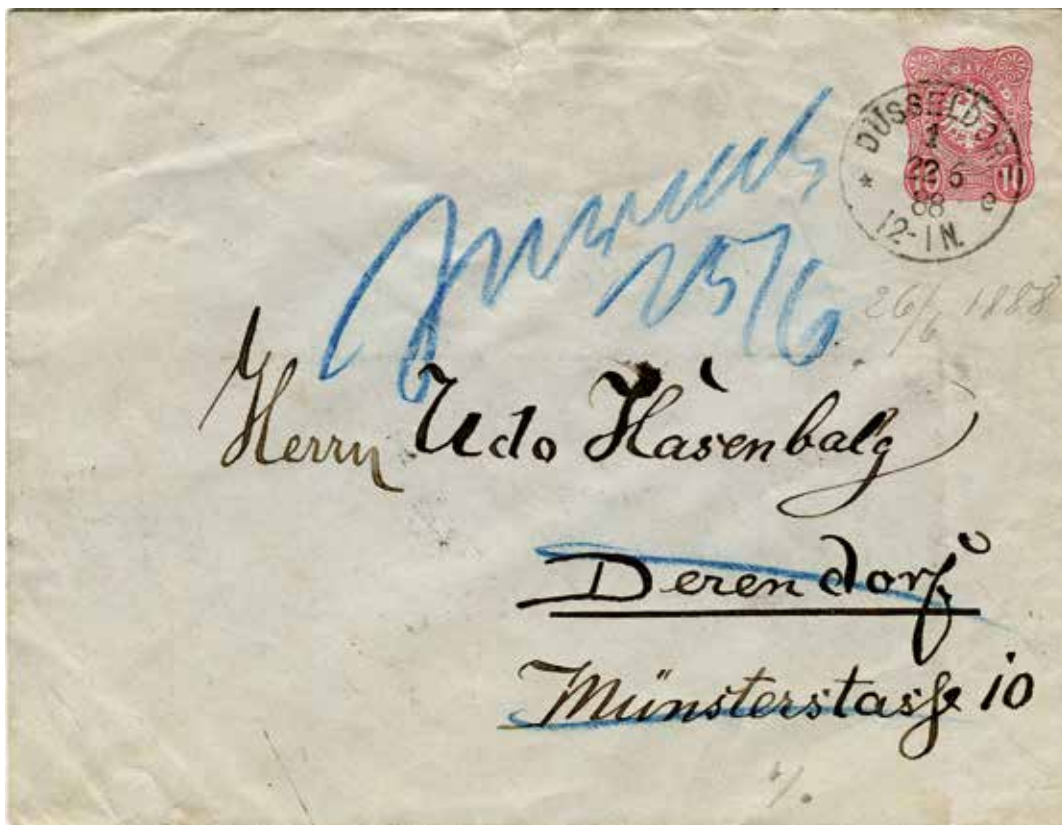 DÜSSELDORF
1
22 6
88 e
12-1 N.
10 10
25/6
26/6 1888
Herrn Udo Hasenbalg
Derendorf
Münsterstasse 10